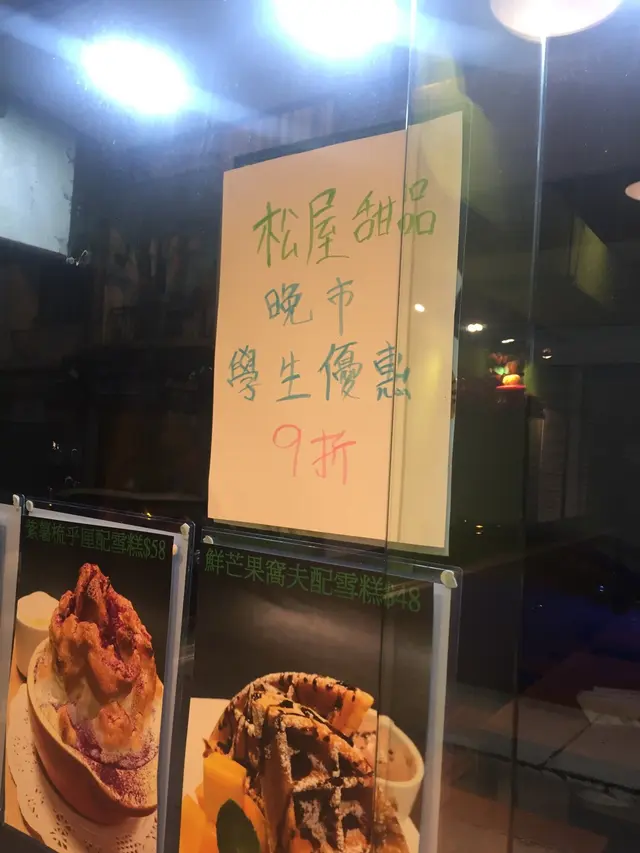 松屋甜品
晚市
學生優惠
9折
紫薯梳乎厘配雪糕$58
鮮芒果窩夫配雪糕$48